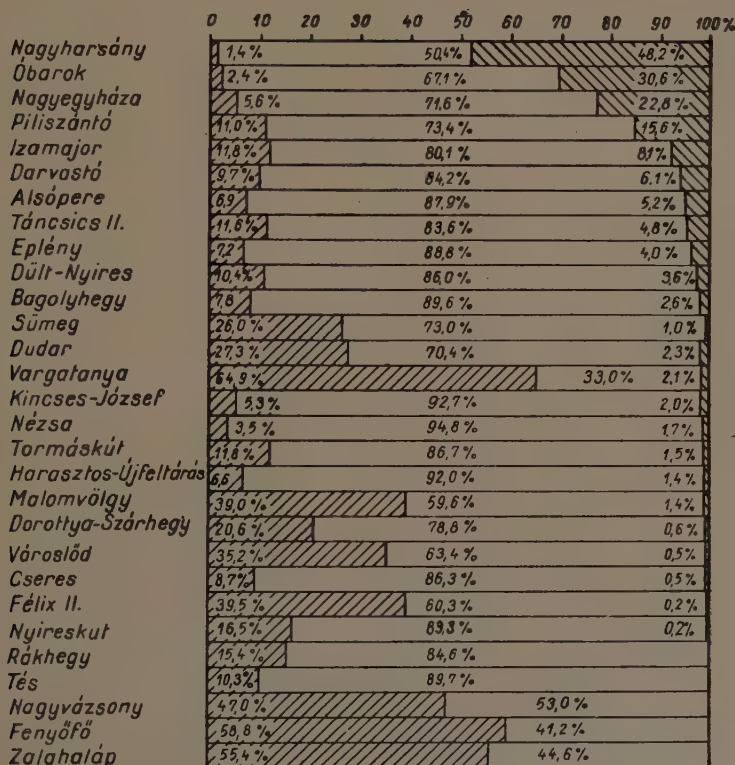 0 10 20 30 40 50 60 70 80 90 100%
Nagyharsány 1,4% 50,4% 48,2%
Óbarok 2,4% 67,1% 30,6%
Nagyegyháza 5,6% 71,6% 22,8%
Piliszántó 11,0% 73,4% 15,6%
Izamajor 11,8% 80,1% 8,1%
Darvastó 9,7% 84,2% 6,1%
Alsópere 6,9 87,9% 5,2%
Táncsics II. 11,6% 83,6% 4,8%
Eplény 7,2 88,8% 4,0%
Dűlt-Nyires 10,4% 86,0% 3,6%
Bagolyhegy 7,8 89,6% 2,6%
Sümeg 26,0% 73,0% 1,0%
Dudar 27,3% 70,4% 2,3%
Vargatanya 64,9% 33,0% 2,1%
Kincses-József 5,3% 92,7% 2,0%
Nézsa 3,5% 94,8% 1,7%
Tormáskút 11,8% 86,7% 1,5%
Harasztos-Újfeltárás 6,6 92,0% 1,4%
Malomvölgy 39,0% 59,6% 1,4%
Dorottya-Szárhegy 20,6% 78,8% 0,6%
Városlőd 35,2% 63,4% 0,5%
Cseres 8,7% 86,3% 0,5%
Félix II. 39,5% 60,3% 0,2%
Nyireskut 16,5% 83,3% 0,2%
Rákhegy 15,4% 84,6%
Tés 10,3% 89,7%
Nagyvázsony 47,0% 53,0%
Fenyőfő 58,8% 41,2%
Zalahaláp 55,4% 44,6%